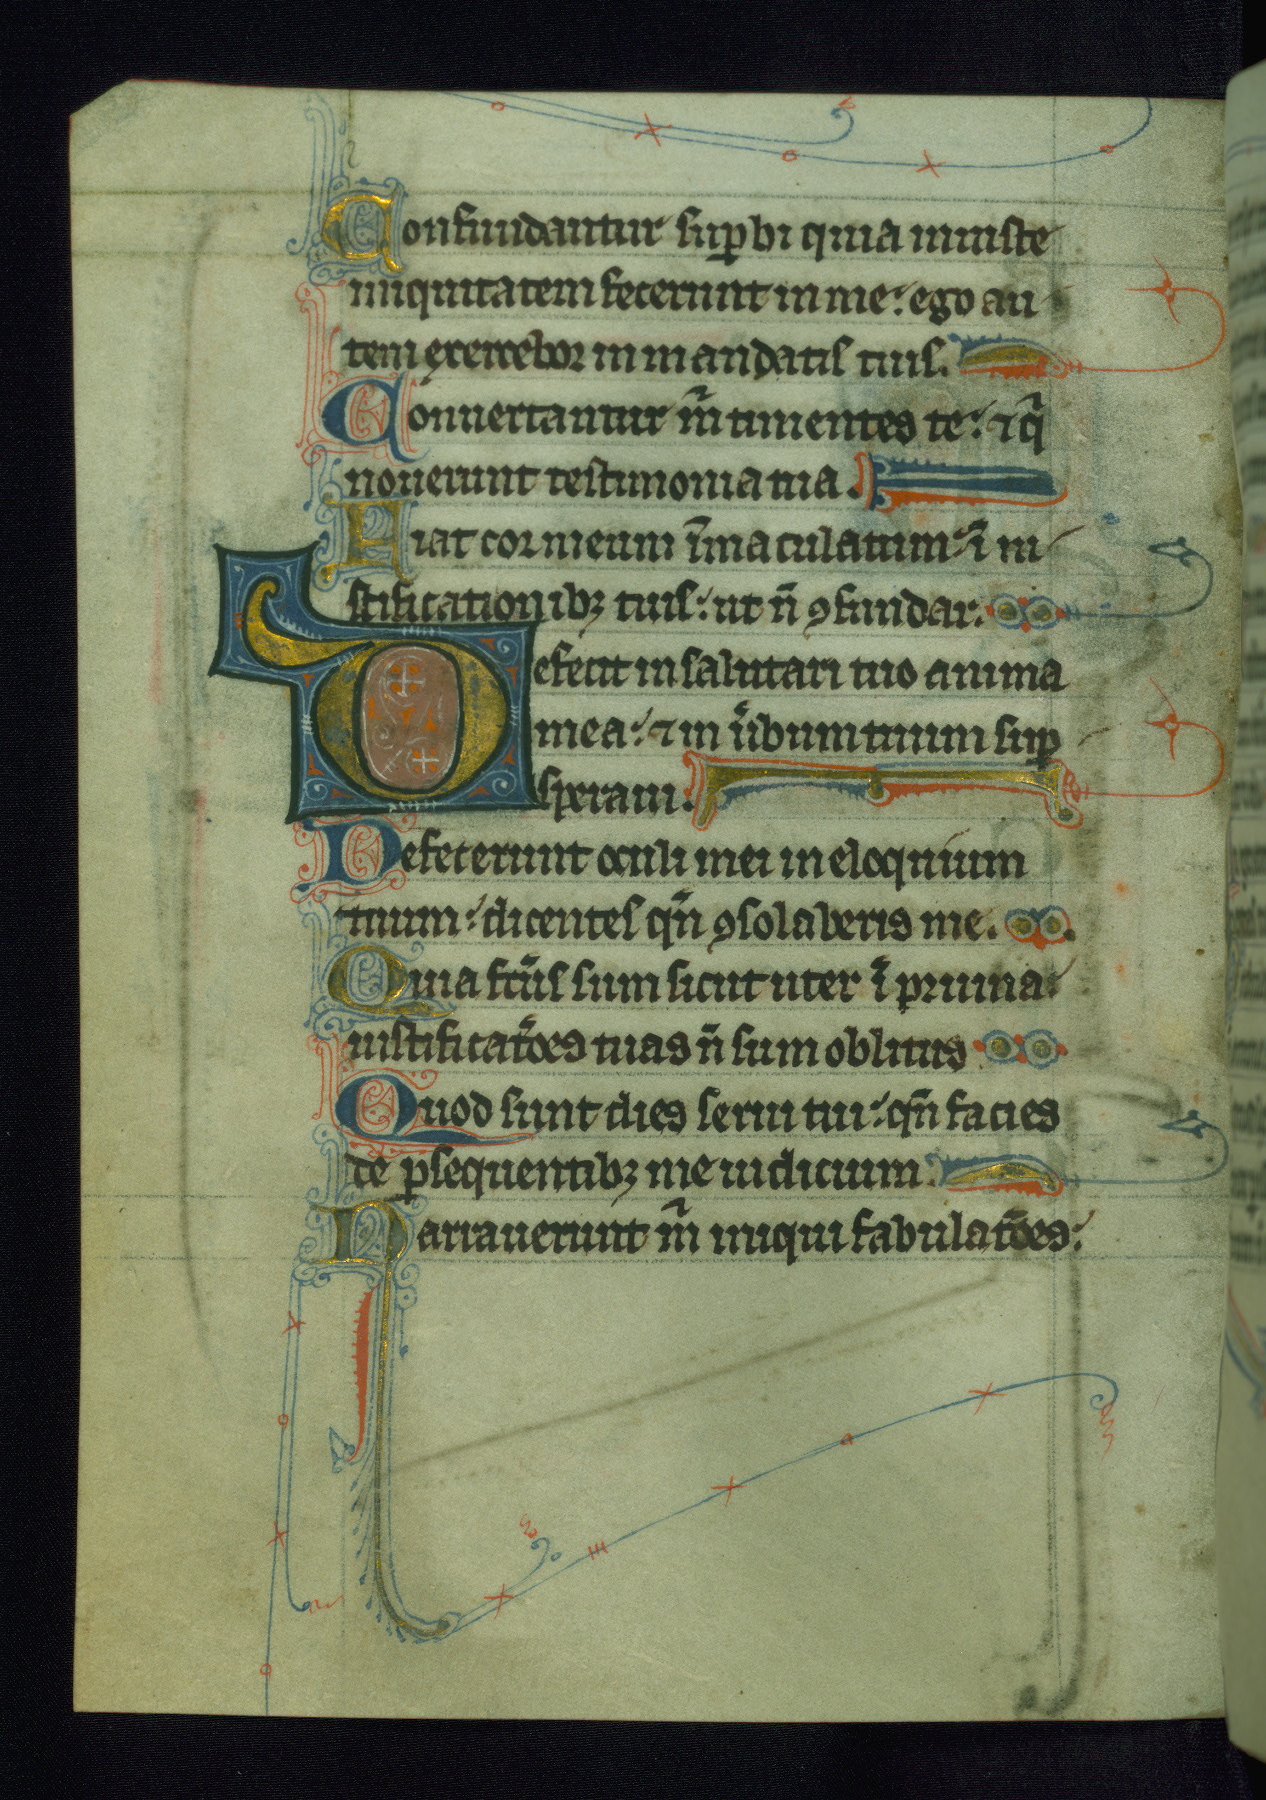 Confundantur sup̱bi quia iniuste
iniquitatem fecerunt in me: ego au
tem exercebor in mandatis tuis.
Conuertantur m̃ timentes te: ⁊ q̃
nouerunt testimonia tua.
Fiat cor meum ĩmaculatum ĩ iu
stificationibꝫ tuis: ut ñ ꝯfundar.
Defecit in salutari tuo anima
mea: ⁊ in ũbum tuum suꝑ
speraui:
Defecerunt oculi mei in eloquium
tuum: dicentes qñ ꝯsolaberis me.
Quia fc̃us sum sicut uter ĩ pruina:
iustificat̃oes tuas ñ sum oblitus
Quod sunt dies serui tui: qñ facies
de ꝑsequentibꝫ me iudicium.
Narrauerunt m̃ iniqui fabulat̃oes: